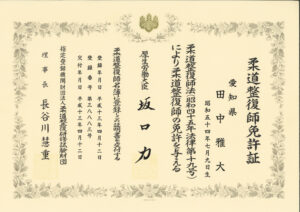 柔道整復師免許証
愛知県
田中雅大
昭和五十四年七月九日生
柔道整復師法(昭和四十五年法律第十九号)
により柔道整復師の免許を与える
厚生労働大臣 坂口力
柔道整復師名簿に登録したことを証明する
登録年月日 平成十三年四月十二日
登録番号 第三八八八三号
交付年月日 平成十三年四月十二日
指定登録機関財団法人柔道整復研修試験財団
理事長 長谷川慧重